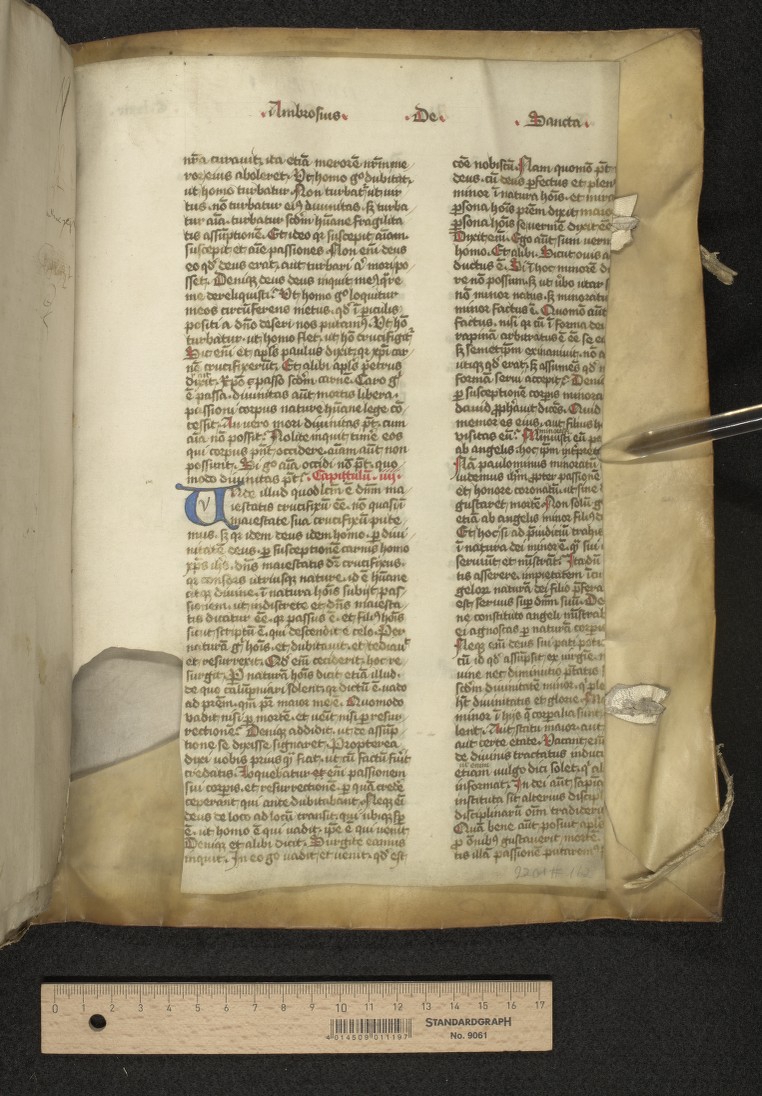 Ambrosius De Sancta
nr̄a curauit, ita etiā merorē nr̄m me
roris eius aboleret. Vt homo g̊ dubitat,
ut homo turbatur. Non turbat᷑ ut uir
tus, nō turbatur eiꝰ diuinitas, sꝫ turba
tur aīa, turbatur scd̄m hūane fragilita
tis assūptionē. Et ideo qꝛ suscepit aīam,
suscepit et aīe passiones. Non em̄ deus
eo qd̓ deus erat, aut turbari aut mori po
sset. Deniqꝫ deus deus inquit meꝰ, qre
me dereliquisti. Vt homo g̊ loquitur
meos circūferens metus, qd̓ ī piculis
positi a dn̄o deseri nos putamꝰ. Vt hō
turbatur, ut homo flet, ut hō crucifigit᷑
Sic em̄ et apl̄s paulus dixit, qꝛ xp̄i car
nē crucifixerūt. Et alibi apl̄s petrus
dixit. Xp̄o g̊ passo scd̄m carnē. Caro g̊
ē passa, diuinitas aūt mortis libera.
passioni corpus nature hūane lege cō
cessit. An vero mori diuinitas pt̄, cum
aīa nō possit. Nolite inquit timē eos
qui corpus pn̄t occidere, aīam aūt non
possunt. Si g̊ aīa occidi nō pt̄, quo
modo diuinitas pt̄. Capitulū .iij.
Vnde illud quod lc̄m ē dn̄m ma
iestatis crucifixū eē, nō quasi ī
maiestate sua crucifixū pute
mus, sꝫ qꝛ idem deus idem homo, ꝑ diui
nitatē deus, ꝑ susceptionē carnis homo
xp̄s ih̄s, dn̄s maiestatis dr̄ crucifixus,
qꝛ consors utriusqꝫ nature, id ē hūane
atqꝫ diuine, ī natura hōis subijt pas
sionem, ut indiscrete et dn̄s maiesta
tis dicatur eē, qꝛ passus ē, et filiꝰ hōis
sicut scriptū ē, qui descendit e celo. Per
naturā g̊ hōis, et dubitauit, et tediauit
et resurrexit. Qd̓ em̄ ceciderit, hoc re
surgit. P̱ naturā hōis dicit etiā illud,
de quo calūpniari solent, qꝛ dictū ē, vado
ad prēm, qm̄ pr̄ maior me ē. Quomodo
vadit nisi ꝑ mortē, et uēit nisi ꝑ resur
rectionē. Deniqꝫ addidit, ut de assūp
tione se dixisse signaret. Propterea
dixi uobis priusqꝫ fiat, ut cū factū fūit
credatis. Loquebatur em̄ passionem
sui corporis, et resurrectionē, ꝑ quā crede
ceperant qui ante dubitabant. Neqꝫ em̄
deus de loco ad locū transit, qui ubiqꝫ sp̄
ē, ut homo ē qui vadit, ip̄e ē qui uenit
Deniqꝫ et alibi dicit. Surgite eamus
inquit. In eo g̊ vadit, et uenit, qd̓ est
cōe nobiscū. Nam quomō pt̄
deus, cū deus ꝑfectus et plen
minor ī natura hōis, et mira
ꝑsona hōis prēm dixit maio
ꝑsona hōis se vermē dixit eē
Dixit em̄. Ego aūt sum verm
homo. Et alibi. Sicut ouis a
ductus ē. Si ī hoc minorē d
re nō possum, sꝫ ut ubo utar
nō minor natus, sꝫ minoratꝰ
minor factus ē. Quomō aūt
factus, nisi qꝛ cū ī forma dei
rapinā arbitratus ē eē se e
sꝫ semetip̄m exinaniuit, nō a
utiqꝫ qd̓ erat, sꝫ assumēs qd̓ n
formā serui accepit. Deniqꝫ
ꝑ susceptionē corpis minora
dauid ꝓphauit dicēs. Quid
memor es eius, aut filius h
visitas eū. Minuisti eū pa
ab angelis, hoc ip̄m int̓pret
Nā paulominus minoratū
uidemus ih̄m, ꝓpter passionē
et honore coronatū, ut sine
gustaret mortē. Non solū g̊
etiā ab angelis minor filiꝰ
Et hoc si ad p̄iudiciū trahit
ī natura dei minor ē, qꝛ sui
seruiūt et mīstrāt. Ita dū
tis asserere, impietatem īcu
gelorꝫ naturā dei filio p̄fera
est seruus sup̄ dn̄m suū. De
ne constituto angeli mīstrab
ei agnoscas ꝑ naturā corpis
Neqꝫ em̄ deus sui pati poti
cū id qd̓ assūpsit ex virgine
vine nec diminutio ptātis
scd̄m diuinitatē minor, qꝛ ple
hꝫ diuinitatis et glorie. Mi
minor ī hijs que corꝑalia sunt
lent. Aut statu maior aut
aut certe etate. Vacant em̄
de diuinis tractatus induci
etiam uulgo dici solet, qꝛ al
informat. In dei aūt sapia
instituta sit alterius discipl
disciplinarū oīm tradiderit
Quā bene aūt posuit apl̄s
ꝑ oībꝰ gustauerit mortē
tis illā passionē putaremꝰ
0 1 2 3 4 5 6 7 8 9 10 11 12 13 14 15 16 17
4 014509 011197
STANDARDGRAPH
No. 9061